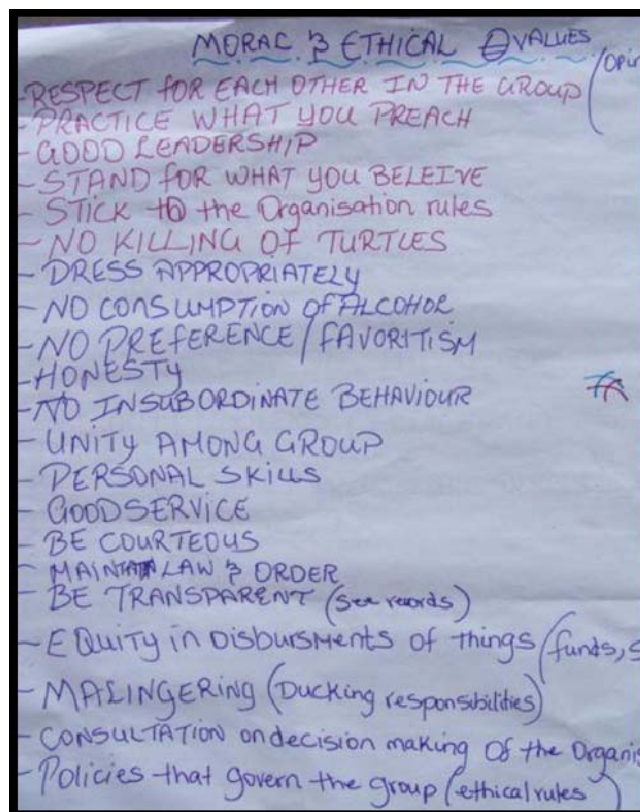 MORAL & ETHICAL VALUES
- RESPECT FOR EACH OTHER IN THE GROUP (opin
- PRACTICE WHAT YOU PREACH
- GOOD LEADERSHIP
- STAND FOR WHAT YOU BELEIVE
- STICK to the Organisation rules
- NO KILLING OF TURTLES
- DRESS APPROPRIATELY
- NO CONSUMPTION OF ALCOHOL
- NO PREFERENCE / FAVORITISM
- HONESTY
- NO INSUBORDINATE BEHAVIOUR
- UNITY AMONG GROUP
- PERSONAL SKILLS
- GOOD SERVICE
- BE COURTEOUS
- MAINTAIN LAW & ORDER
- BE TRANSPARENT (see records)
- EQUITY in DISBURSMENTS of things (funds, s
- MALINGERING (Ducking responsibilities)
- CONSULTATION on decision making of the Organis
- Policies that govern the group (ethical rules)